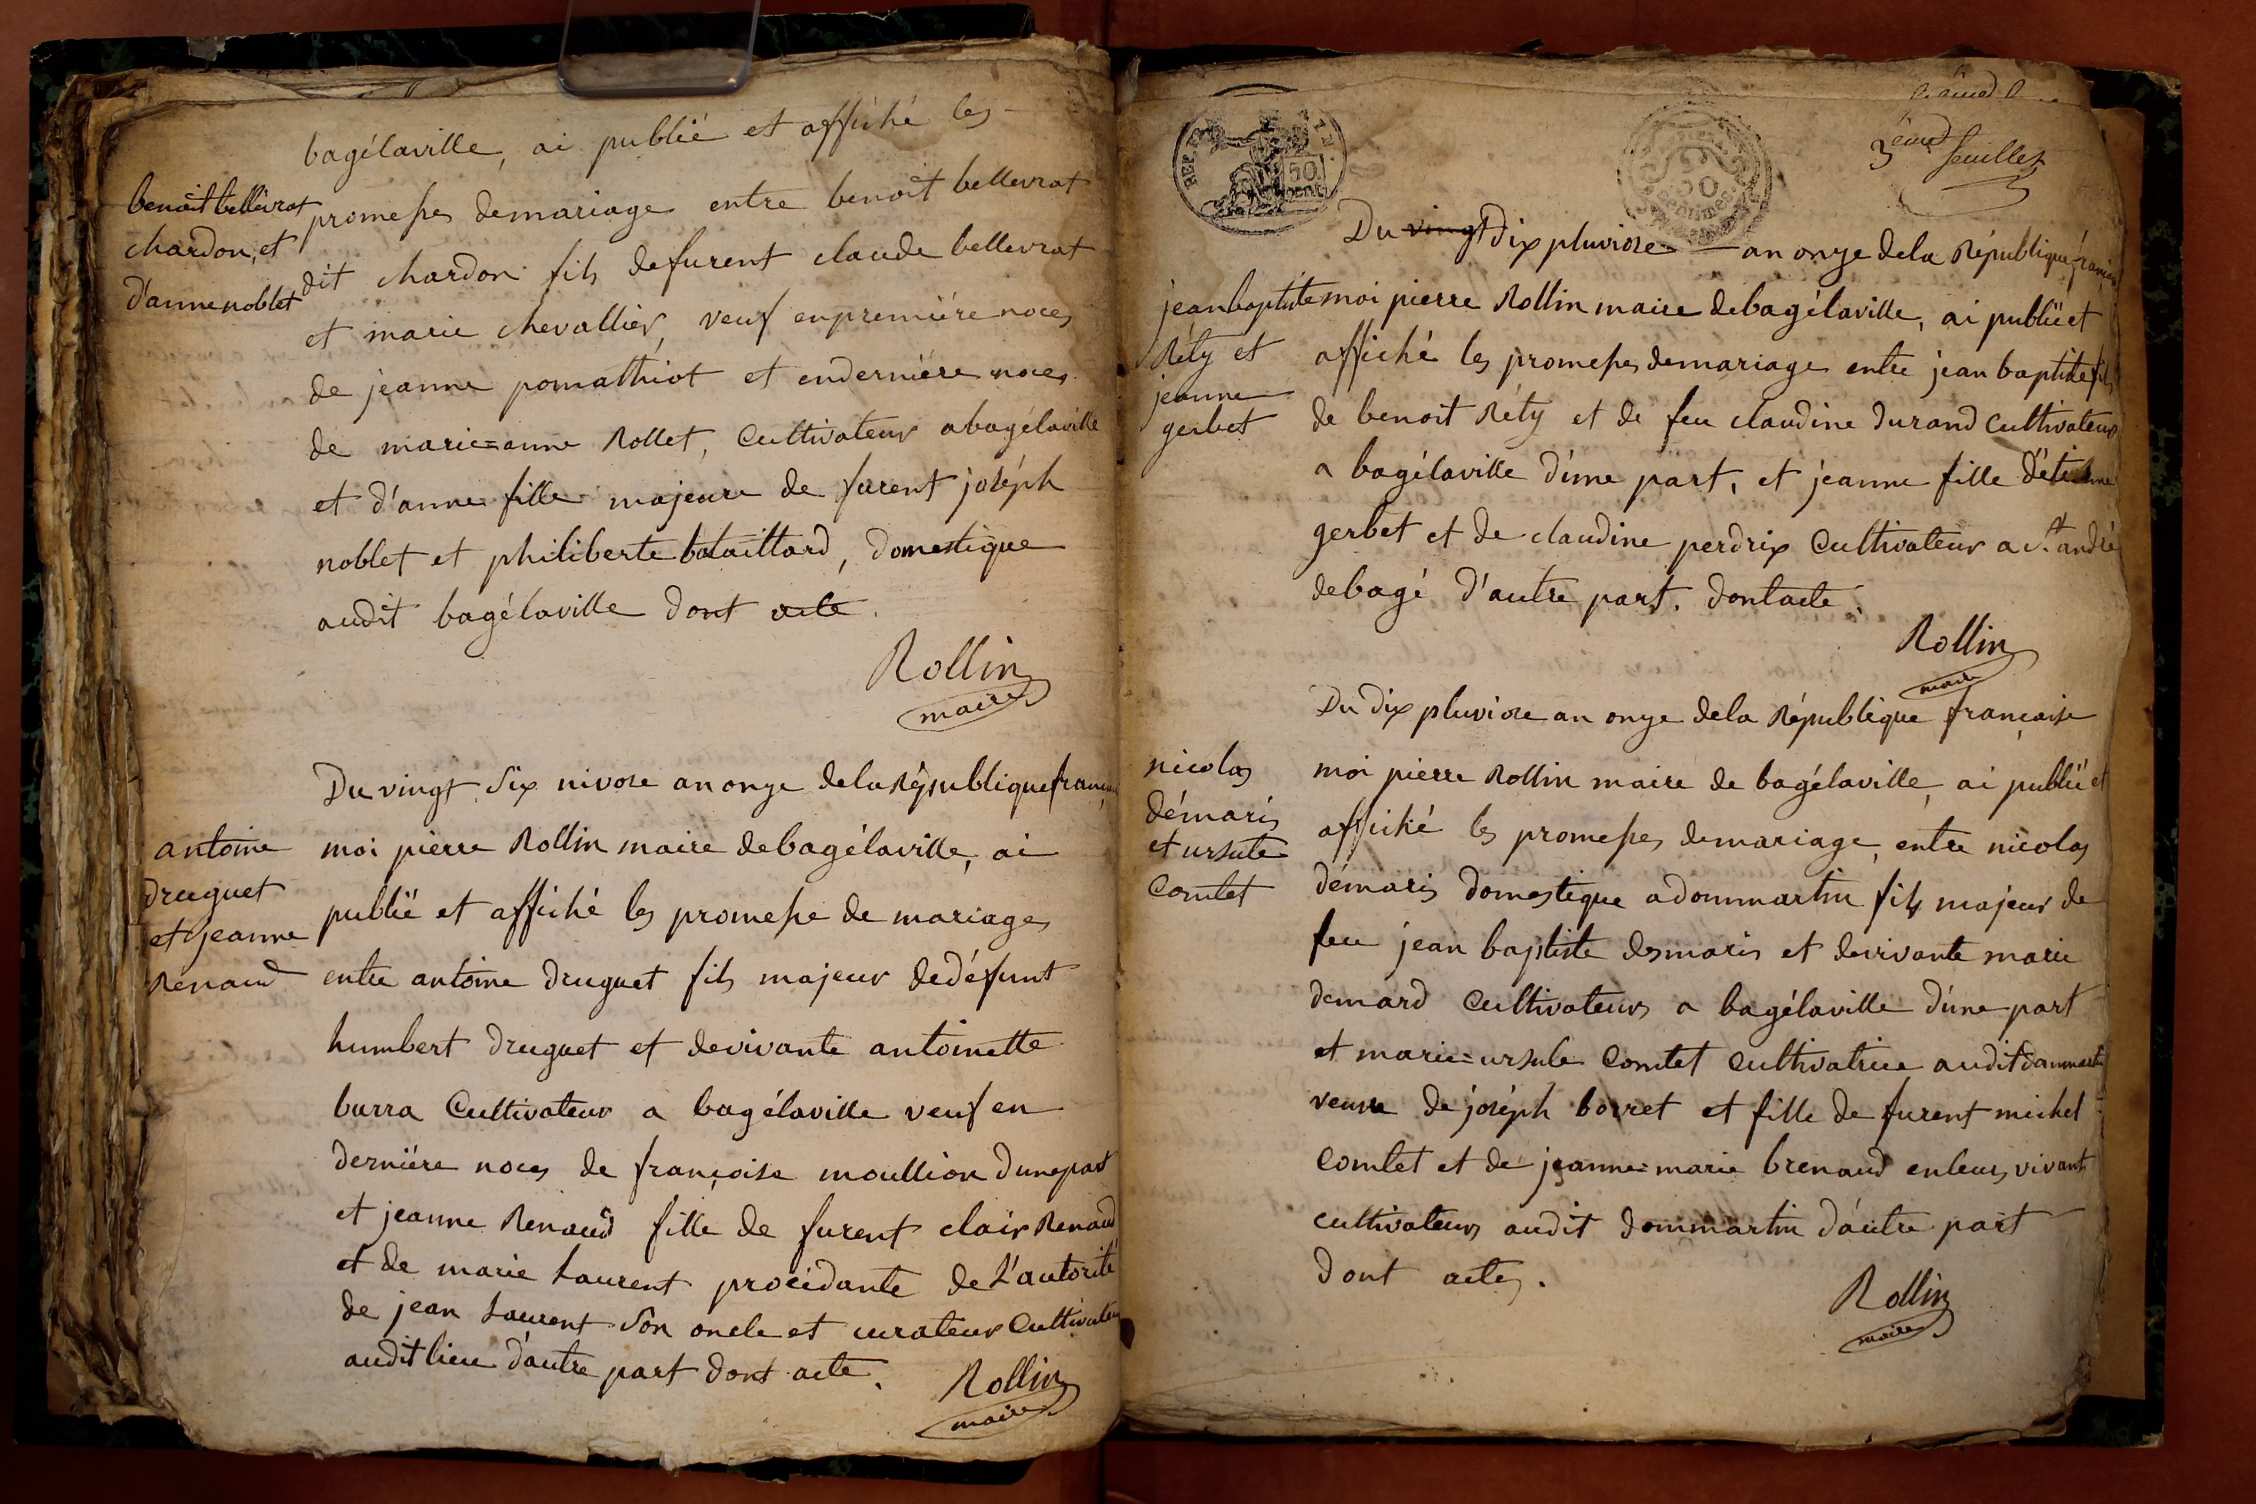 bagélaville, ai publié et affiché les
benoit bellevrat
chardon, et
d'anne noblet
promesses demariage entre benoit bellevrat
dit chardon fils defurent claude bellevrat
et marie chevallier, veuf enpremiére noces
de jeanne pomathiot et enderniére noces
de marie=anne Rollet, Cultivateur abagélaville
et d'anne fille majeure de furent joséph
noblet et philiberte bataillard, domestique
audit bagélaville dont acte.
Rollin
maire
Du vingt Six nivose an onze dela République
antoine
druguet
et jeanne
Renaud
moi pierre Rollin maire debagélaville, ai
publié et affiché les promesse de mariages
entre antoine druguet fils majeur dedéfunt
humbert druguet et devivante antoinette
burra Cultivateur a bagélaville veuf en
derniére noces de françoise moullion dunepart
et jeanne Renaud fille de furent clair Renaud
et de marie Laurent procédante de L'autorité
de jean Laurent Son oncle et curateur Cultivateur
audit lieu d'autre part dont acte.
Rollin
maire
3eme feuillet
50
REP. FRA.
50 cent
50 centimes
Du vingt dix pluviose an onze dela République
jean baptiste
Réty et
jeanne
gerbet
moi pierre Rollin maire debagélaville, ai publié et
affiché les promesses demariage entre jean baptiste fils
de benoit Réty et de feu claudine durand Cultivateur
a bagélaville d'une part, et jeanne fille d'étienne
gerbet et de claudine perdrix Cultivateur a St. andré
debagé d'autre part. dontacte.
Rollin
maire
Du dix pluviose an onze dela République française
nicolas
démaris
et ursule
Comtet
moi pierre Rollin maire de bagélaville, ai publié et
affiché les promesses demariage, entre nicolas
démaris domestique adommartin fils majeur de
feu jean baptiste desmaris et devivante marie
demard Cultivateurs a bagélaville d'une part
et marie=ursule Comtet cultivatrice audit dommartin
veuve de joséph bovret et fille de furent michel
Comtet et de jeanne=marie brenaud enleurs vivant
cultivateurs audit dommartin d'autre part
dont actes.
Rollin
maire